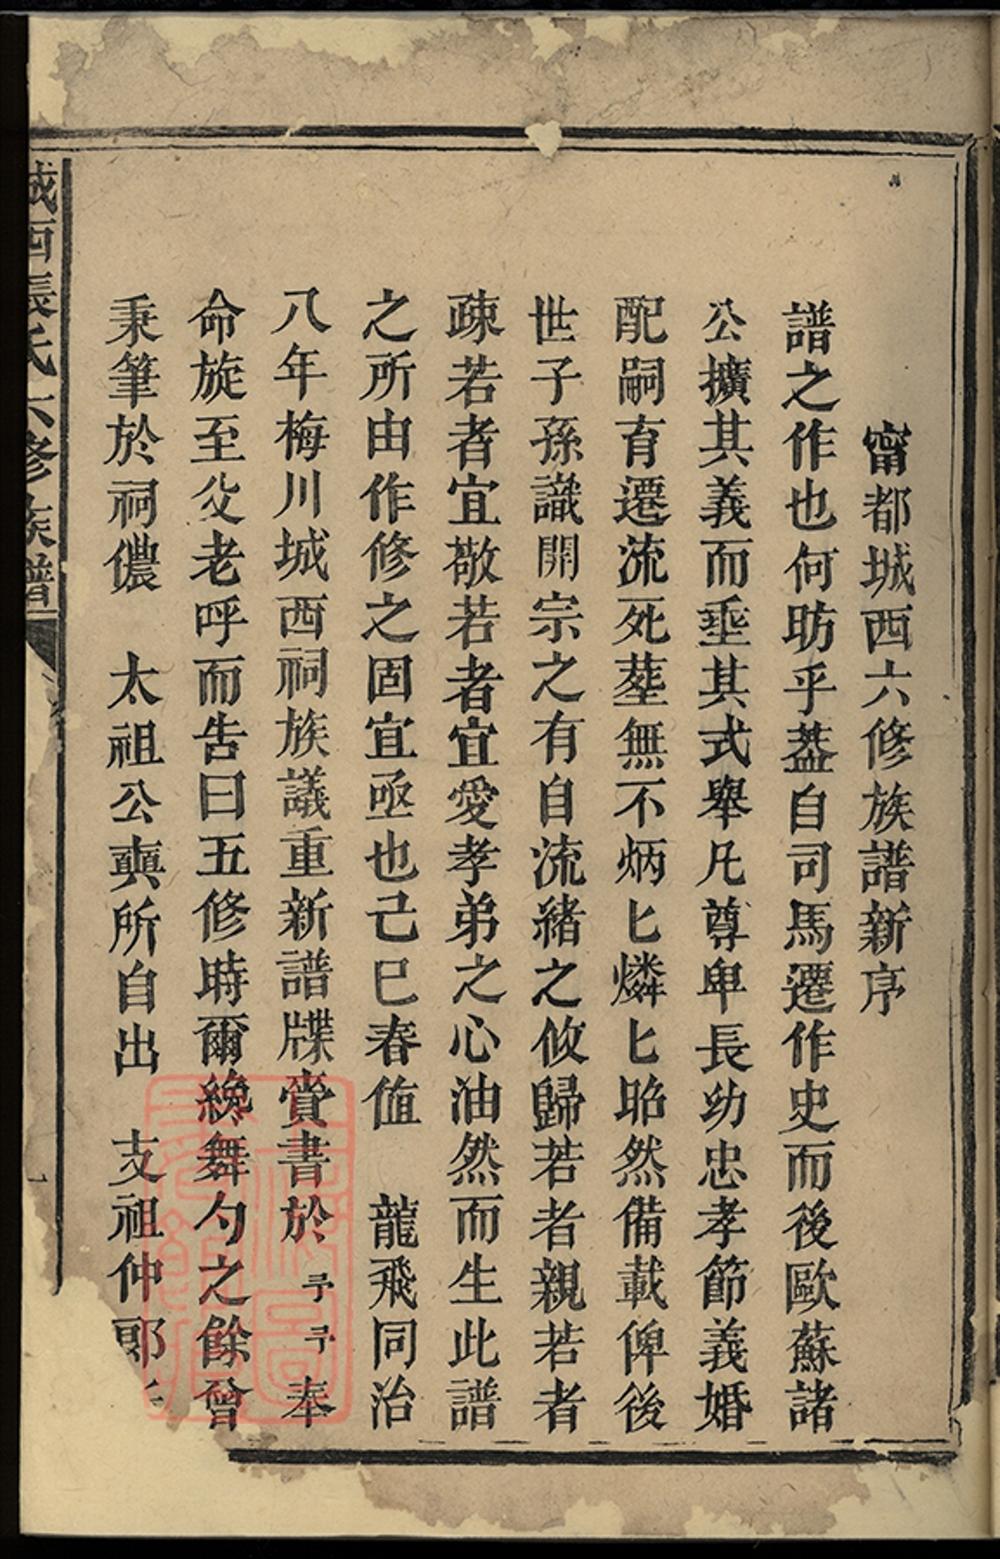 甯都城西六修族譜新序
譜之作也何昉乎葢自司馬遷作史而後歐蘇諸
公擴其義而垂其式舉凡尊卑長幼忠孝節義婚
配嗣育遷流死塟無不炳匕燐匕昭然備載俾後
世子孫識開宗之有自流緒之攸歸若者親若者
疎若者宜敬若者宜愛孝弟之心油然而生此譜
之所由作修之固宜亟也己巳春值 龍飛同治
八年梅川城西祠族議重新譜牒賫書於予予奉
命旋至父老呼而告曰五修時爾纔舞勺之餘曾
秉筆於祠儂 太祖公蕒所自出 支祖仲郎
城西張氏六修族譜